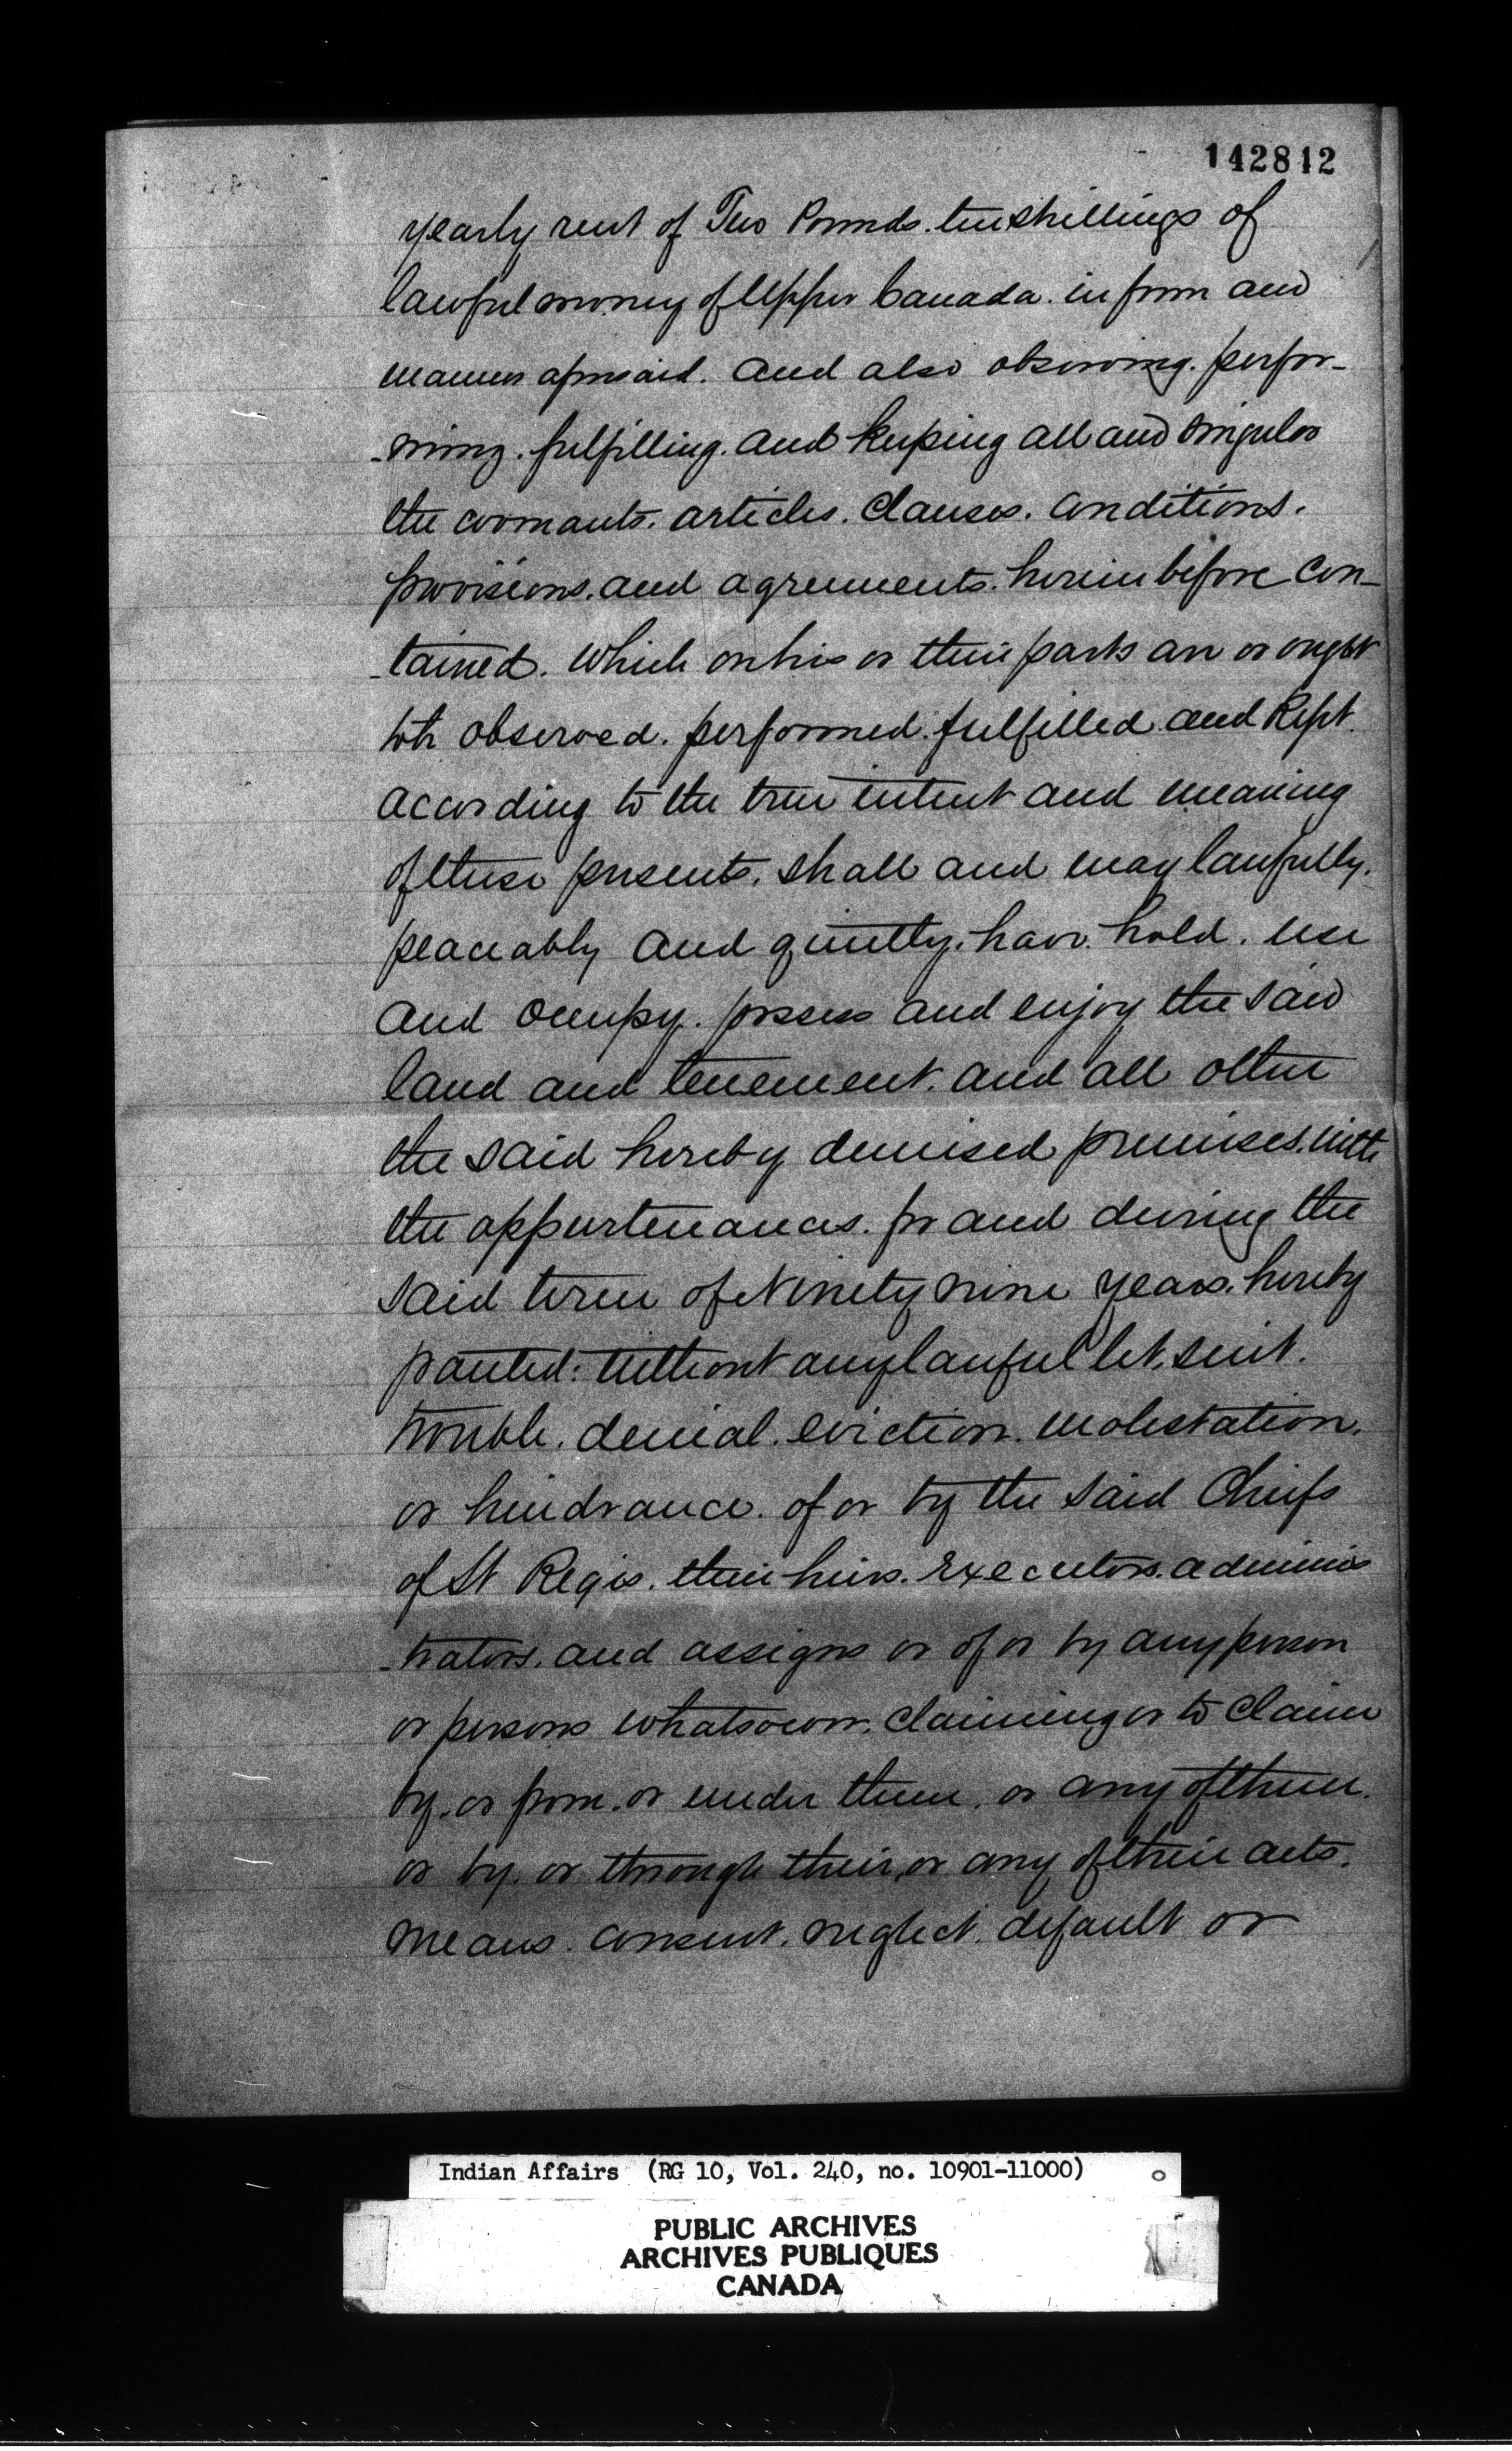 142812
yearly rent of Two Pounds. ten shillings of
lawful money of Upper Canada. in form and
manner aforesaid. and also observing. perfor-
-ming. fulfilling. and keeping all and singular
the covenants. articles. clauses. conditions.
provisions. and agreements. herein before con-
-tained. which on his or their parts are or ought
to be observed. performed. fulfilled. and kept.
according to the true intent and meaning
of these presents. shall and may lawfully.
peaceably and quietly. have. hold. use
and occupy. possess and enjoy the said
land and tenement. and all other
the said hereby demised premises. with
the appurtenances. for and during the
said term of Ninety nine years. hereby
granted: without any lawful let. suit.
trouble. denial. eviction. molestation.
or hindrance. of or by the said Chiefs
of St Regis. their heirs. Executors. adminis
-trators. and assigns or of or by any person
or persons whatsoever. claiming or to claim
by. or from. or under them. or any of them.
or by. or through their, or any of their acts.
means. consent. neglect. default or
Indian Affairs (RG 10, Vol. 240, no. 10901-11000)
PUBLIC ARCHIVES
ARCHIVES PUBLIQUES
CANADA